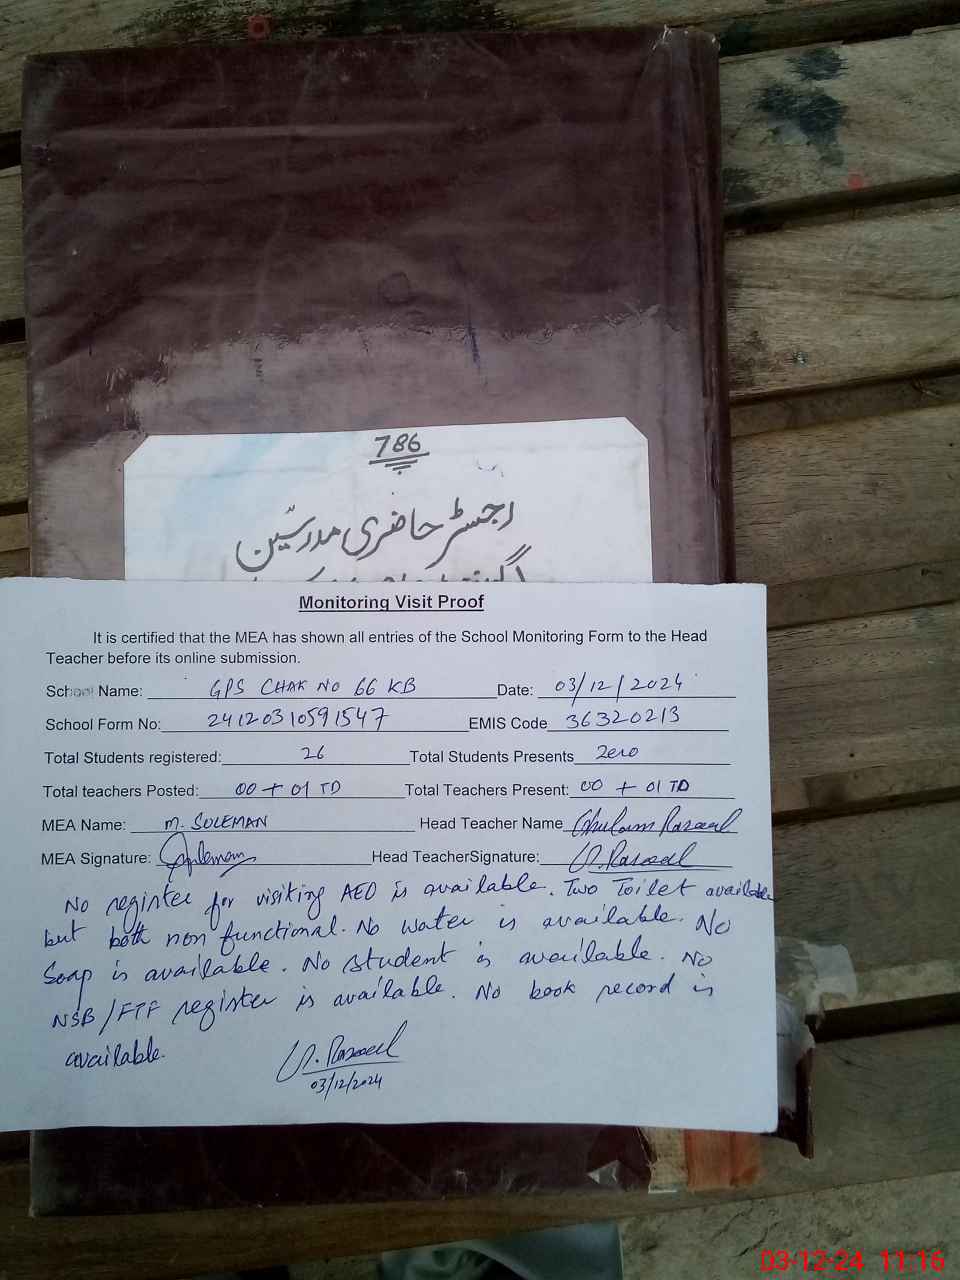 786
رجسٹر حاضری مدرسین
Monitoring Visit Proof
It is certified that the MEA has shown all entries of the School Monitoring Form to the Head
Teacher before its online submission.
School Name: GPS CHAK NO 66 KB Date: 03/12/2024
School Form No: 24120310591547 EMIS Code 36320213
Total Students registered: 26 Total Students Presents Zero
Total teachers Posted: 00 + 01 TD Total Teachers Present: 00 + 01 TD
MEA Name: M. SULEMAN Head Teacher Name Ghulam Rasool
MEA Signature: Suleman Head TeacherSignature: G. Rasool
No register for visiting AEO is available. Two Toilet available
but both non functional. No water is available. No
Soap is available. No student is available. No
NSB/FTF register is available. No book record is
available.
G. Rasool
03/12/2024
03-12-24 11:16